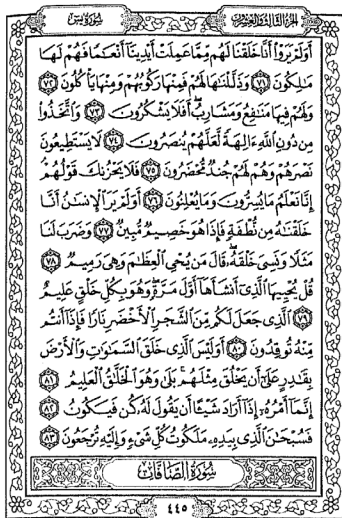 الجزء الثالث والعشرون
سورة يس
أَوَلَمْ يَرَوْا أَنَّا خَلَقْنَا لَهُم مِّمَّا عَمِلَتْ أَيْدِينَا أَنْعَامًا فَهُمْ لَهَا
مَالِكُونَ ٧١ وَذَلَّلْنَاهَا لَهُمْ فَمِنْهَا رَكُوبُهُمْ وَمِنْهَا يَأْكُلُونَ ٧٢
وَلَهُمْ فِيهَا مَنَافِعُ وَمَشَارِبُ أَفَلَا يَشْكُرُونَ ٧٣ وَاتَّخَذُوا
مِن دُونِ اللَّهِ ءَالِهَةً لَّعَلَّهُمْ يُنصَرُونَ ٧٤ لَا يَسْتَطِيعُونَ
نَصْرَهُمْ وَهُمْ لَهُمْ جُندٌ مُّحْضَرُونَ ٧٥ فَلَا يَحْزُنكَ قَوْلُهُمْ
إِنَّا نَعْلَمُ مَا يُسِرُّونَ وَمَا يُعْلِنُونَ ٧٦ أَوَلَمْ يَرَ الْإِنسَانُ أَنَّا
خَلَقْنَاهُ مِن نُّطْفَةٍ فَإِذَا هُوَ خَصِيمٌ مُّبِينٌ ٧٧ وَضَرَبَ لَنَا
مَثَلًا وَنَسِيَ خَلْقَهُ قَالَ مَن يُحْيِ الْعِظَامَ وَهِيَ رَمِيمٌ ٧٨
قُلْ يُحْيِيهَا الَّذِي أَنشَأَهَا أَوَّلَ مَرَّةٍ وَهُوَ بِكُلِّ خَلْقٍ عَلِيمٌ
٧٩ الَّذِي جَعَلَ لَكُم مِّنَ الشَّجَرِ الْأَخْضَرِ نَارًا فَإِذَا أَنتُم
مِّنْهُ تُوقِدُونَ ٨٠ أَوَلَيْسَ الَّذِي خَلَقَ السَّمَاوَاتِ وَالْأَرْضَ
بِقَادِرٍ عَلَى أَن يَخْلُقَ مِثْلَهُم بَلَى وَهُوَ الْخَلَّاقُ الْعَلِيمُ ٨١
إِنَّمَا أَمْرُهُ إِذَا أَرَادَ شَيْئًا أَن يَقُولَ لَهُ كُن فَيَكُونُ ٨٢
فَسُبْحَانَ الَّذِي بِيَدِهِ مَلَكُوتُ كُلِّ شَيْءٍ وَإِلَيْهِ تُرْجَعُونَ ٨٣
سُورَةُ الصَّافَّاتِ
٤٤٥